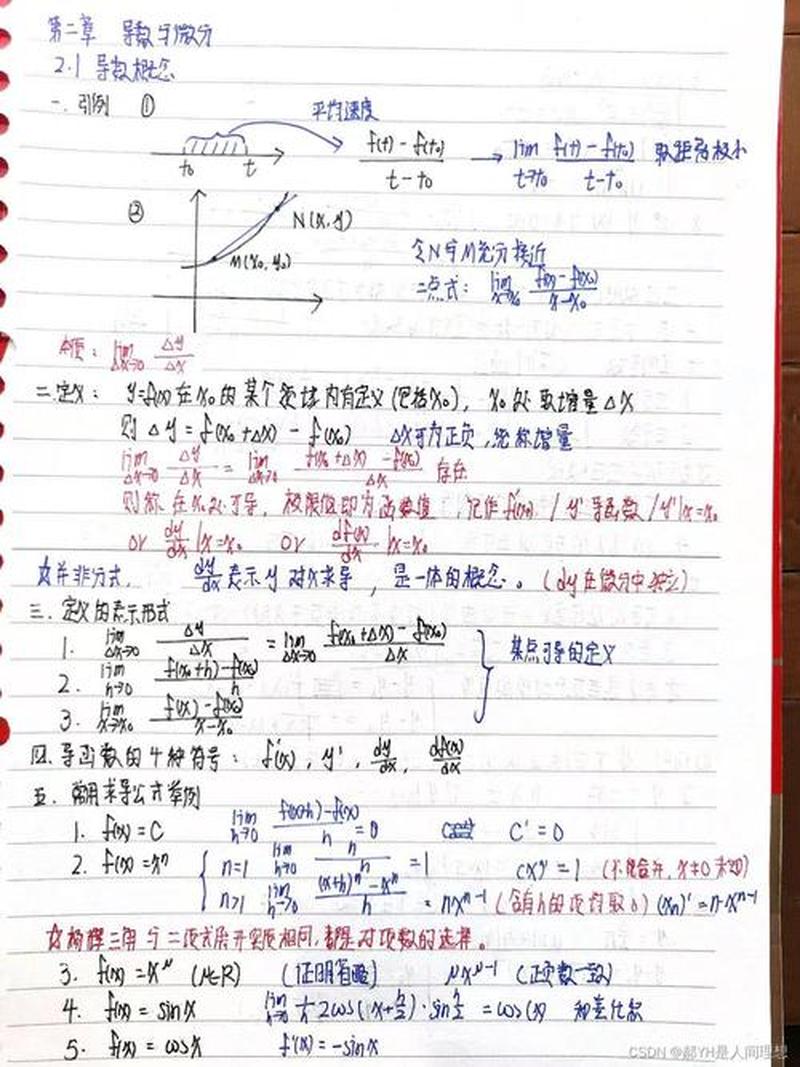 第二章 导数与微分
2.1 导数概念
一. 引例 ① 平均速度
t₀ t (f(t) - f(t₀))/(t - t₀) → lim t→t₀ (f(t) - f(t₀))/(t - t₀) 取距离极小
② N(x, y)
M(x₀, y₀)
令N与M充分接近
二点式: lim x→x₀ (f(x) - f(x₀))/(x - x₀)
本质: lim Δx→0 Δy/Δx
二. 定义: y=f(x) 在 x₀ 的某个领域内有定义 (包括x₀), x₀ 处取增量 Δx
则 Δy = f(x₀ + Δx) - f(x₀) Δx可为正负, 统称增量
lim Δx→0 Δy/Δx = lim Δx→0 (f(x₀ + Δx) - f(x₀))/Δx 存在
则称在x₀处可导, 极限值即为函数值, 记作 f'(x₀) / y' 导函数 / y'|x=x₀
or dy/dx |x=x₀ or df(x)/dx |x=x₀
☆并非分式, dy/dx 表示 y 对x求导, 是一体的概念。(dy在微分中独立)
三. 定义的表示形式
1. lim Δx→0 Δy/Δx = lim Δx→0 (f(x₀ + Δx) - f(x₀))/Δx
2. lim h→0 (f(x₀+h) - f(x₀))/h
3. lim x→x₀ (f(x) - f(x₀))/(x - x₀)
} 某点可导的定义
四. 导函数的4种符号: f'(x), y', dy/dx, df(x)/dx
五. 常用求导公式举例
1. f(x) = C lim h→0 (f(x+h) - f(x))/h = 0 C' = 0
2. f(x) = xⁿ { n=1 lim h→0 h/h = 1 (x)' = 1
n>1 lim h→0 ((x+h)ⁿ - xⁿ)/h = nxⁿ⁻¹ (含有h的项均取0) (xn)' = n·xⁿ⁻¹
☆杨辉三角与二项式展开实质相同, 都是对项数的选择。
3. f(x) = x^μ (μ∈R) (证明省略) μx^μ⁻¹ (正负数一致)
4. f(x) = sinx lim h→0 1/h · 2cos(x+h/2)·sin h/2 = cos(x) 和差化积
5. f(x) = cosx f'(x) = -sinx
CSDN @郝YH是人间理想